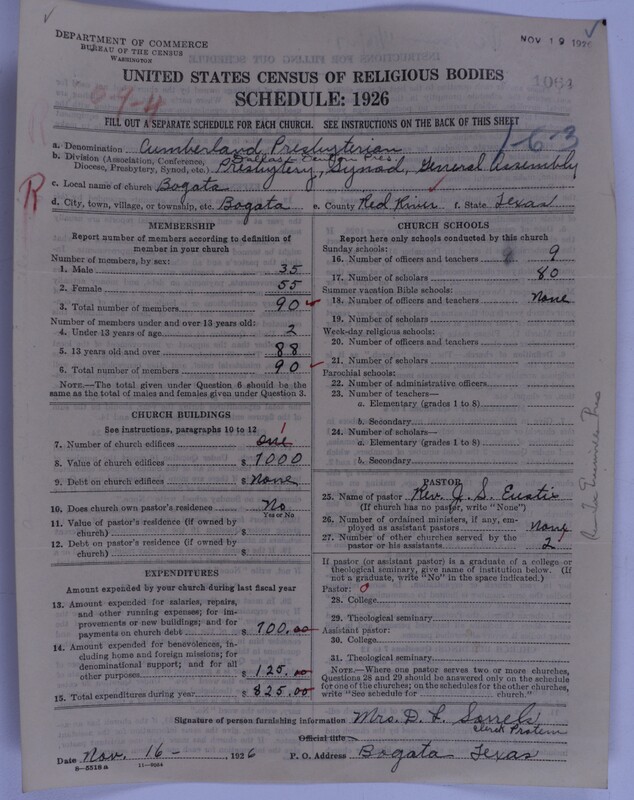 DEPARTMENT OF COMMERCE
BUREAU OF THE CENSUS
WASHINGTON
NOV 19 1926
1084
UNITED STATES CENSUS OF RELIGIOUS BODIES
SCHEDULE: 1926
09-4
FILL OUT A SEPARATE SCHEDULE FOR EACH CHURCH. SEE INSTRUCTIONS ON THE BACK OF THIS SHEET
1-6-3
a. Denomination Cumberland Presbyterian
b. Division (Association, Conference, Diocese, Presbytery, Synod, etc.) Presbytery, Synod, General Assembly
R
c. Local name of church Bogata
d. City, town, village, or township, etc. Bogata e. County Red River f. State Texas
MEMBERSHIP
Report number of members according to definition of
member in your church
Number of members, by sex:
1. Male 35
2. Female 55
3. Total number of members 90
Number of members under and over 13 years old:
4. Under 13 years of age 2
5. 13 years old and over 88
6. Total number of members 90
NOTE.—The total given under Question 6 should be the
same as the total of males and females given under Question 3.
CHURCH BUILDINGS
See instructions, paragraphs 10 to 12
7. Number of church edifices one 1
8. Value of church edifices $ 7000
9. Debt on church edifices $ None
10. Does church own pastor's residence No
Yes or No
11. Value of pastor's residence (if owned by
church) $
12. Debt on pastor's residence (if owned by
church) $
EXPENDITURES
Amount expended by your church during last fiscal year
13. Amount expended for salaries, repairs,
and other running expenses; for im-
provements or new buildings; and for
payments on church debt $ 700.00
14. Amount expended for benevolences,
including home and foreign missions; for
denominational support; and for all
other purposes $ 125.00
15. Total expenditures during year $ 825.00
CHURCH SCHOOLS
Report here only schools conducted by this church
Sunday schools:
16. Number of officers and teachers 9
17. Number of scholars 80
Summer vacation Bible schools:
18. Number of officers and teachers None
19. Number of scholars
Week-day religious schools:
20. Number of officers and teachers
21. Number of scholars
Parochial schools:
22. Number of administrative officers
23. Number of teachers—
a. Elementary (grades 1 to 8)
b. Secondary
24. Number of scholars—
a. Elementary (grades 1 to 8)
b. Secondary
PASTOR
25. Name of pastor Rev. J. S. Eustis
(If church has no pastor, write "None")
26. Number of ordained ministers, if any, em-
ployed as assistant pastors None
27. Number of other churches served by the
pastor or his assistants 2
If pastor (or assistant pastor) is a graduate of a college or
theological seminary, give name of institution below. (If
not a graduate, write "No" in the space indicated.)
Pastor: 0
28. College
29. Theological seminary
Assistant pastor:
30. College
31. Theological seminary
NOTE.—Where one pastor serves two or more churches,
Questions 28 and 29 should be answered only on the schedule
for one of the churches; on the schedules for the other churches,
write "See schedule for church."
Signature of person furnishing information Mrs. D. L. Sorrels
Official title Clerk Protem
Date Nov. 16 -, 1926 P. O. Address Bogata Texas
8—5518a 11—9064